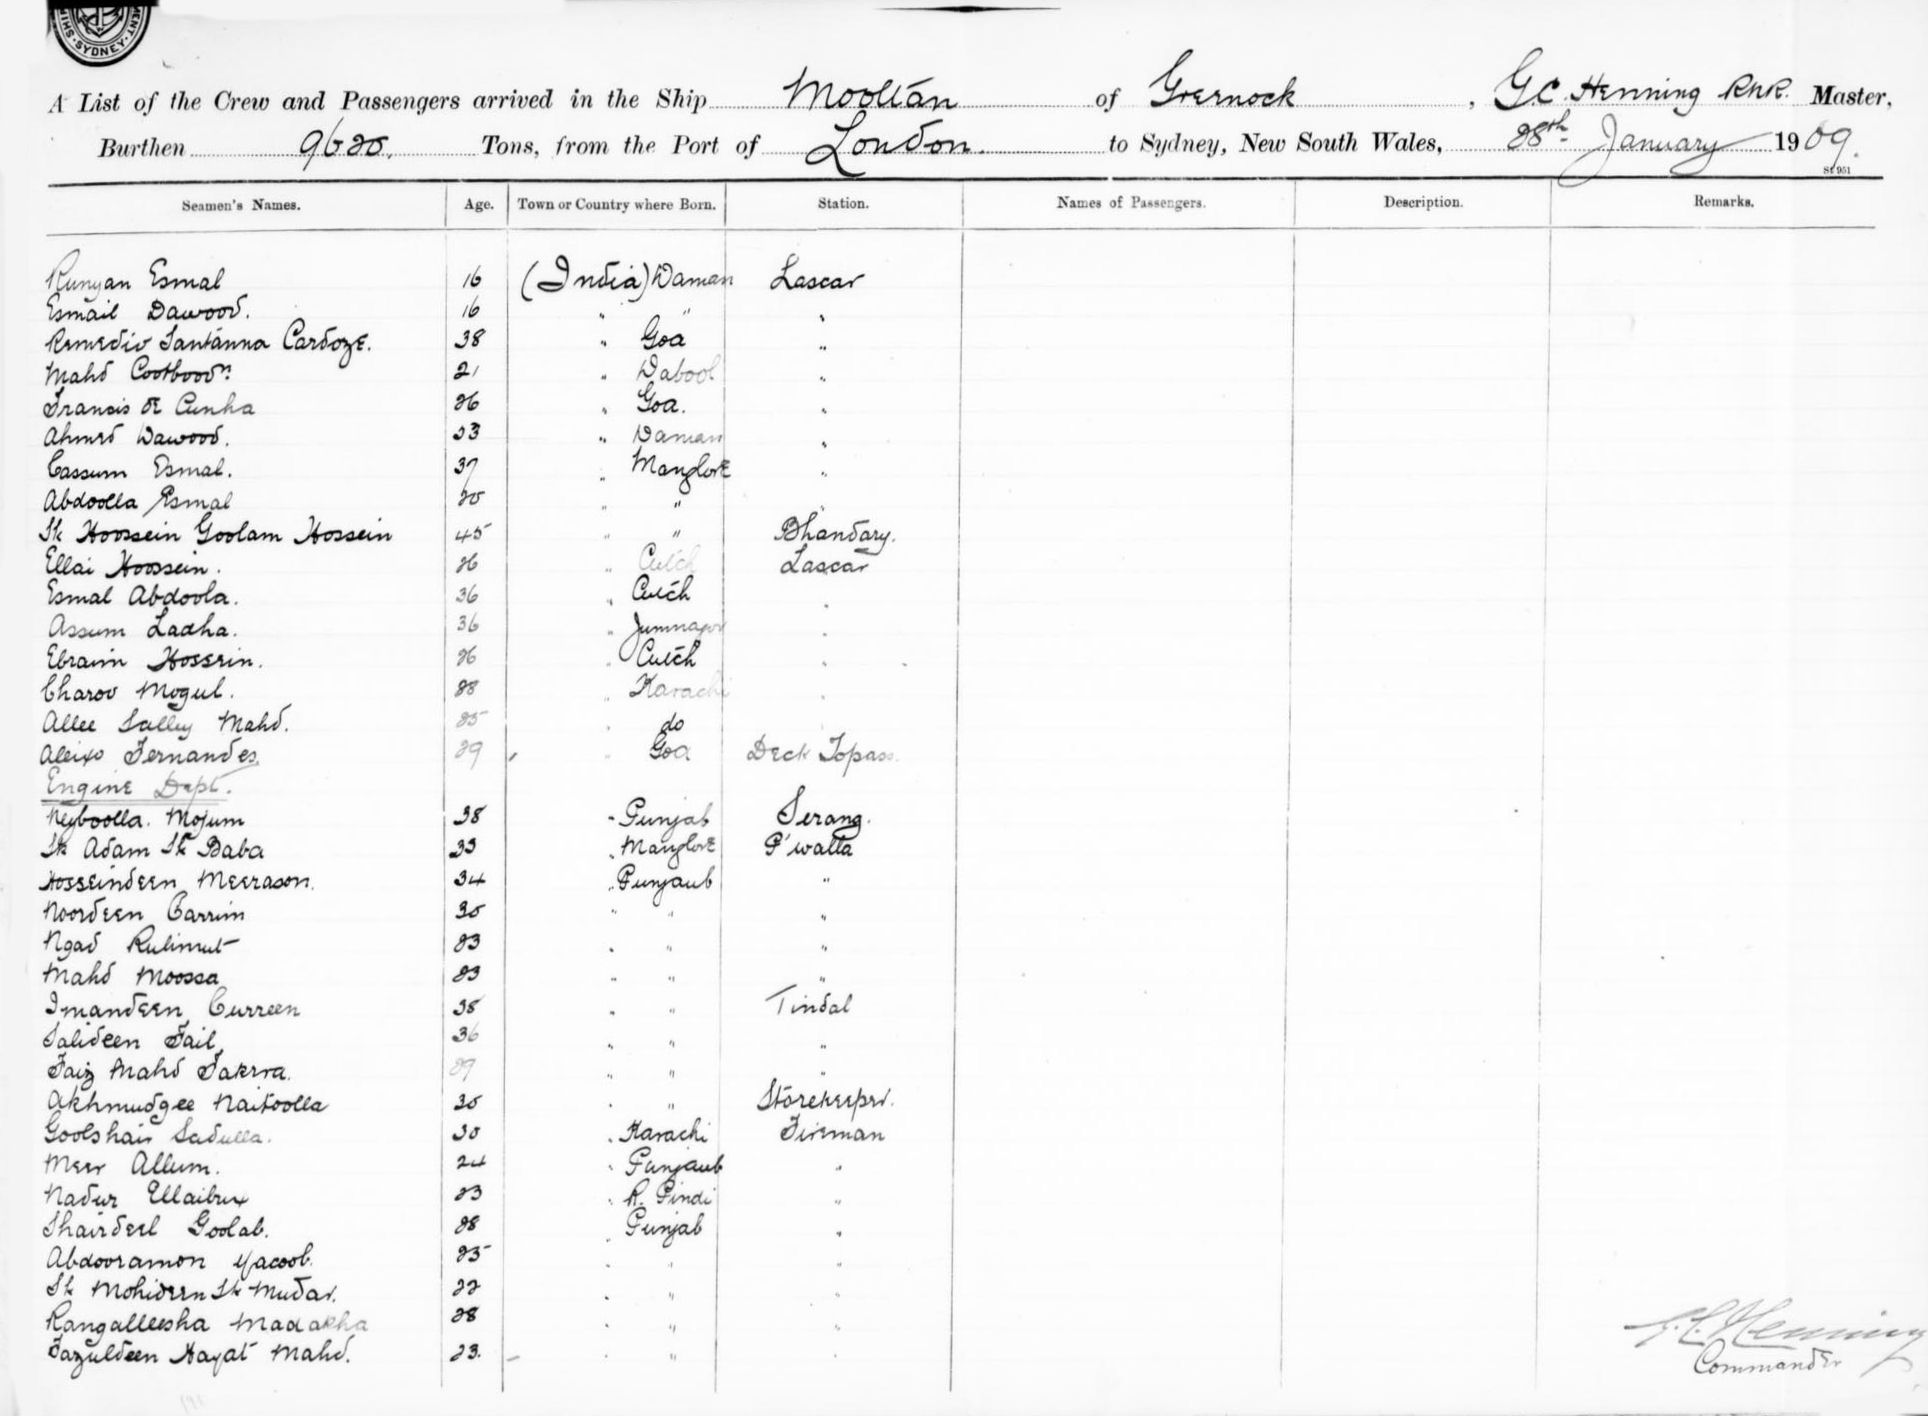 SYDNEY
A List of the Crew and Passengers arrived in the Ship Mooltan of Greenock, G.C. Henning RNR. Master,
Burthen 9620. Tons, from the Port of London. to Sydney, New South Wales, 28th January 1909.
St 951
Seamen's Names. Age. Town or Country where Born. Station. Names of Passengers. Description. Remarks.
Runyan Esmal 16 (India) Daman Lascar
Esmail Dawood. 16 " " "
Remedio Santanna Cardoze. 38 " Goa "
Mahd Cootbood 21 " Dabool "
Francis de Cunha 26 " Goa. "
Ahmed Dawood. 33 " Daman "
Cassum Esmal. 37 " Manglore "
Abdoolla Esmal 20 " " "
Sk Hoossein Goolam Hossein 45 " " Bhandary.
Ellai Hoossein. 26 " Cutch Lascar
Esmal Abdoola. 36 " Cutch "
Assum Ladha. 36 " Jumnagor "
Ebraim Hossein. 26 " Cutch "
Charoo Mogul. 28 " Karachi "
Allee Salley Mahd. 25 " do
Aleixo Fernandes 29 " Goa Deck Topass.
Engine Dept.
Neyboolla. Mojum 38 " Punjab Serang.
Sk Adam Sk Baba 33 " Manglore P'walla
Hosseindeen Meerason. 34 " Punjaub "
Noordeen Carrim 30 " " "
Ngad Rulimut 23 " " "
Mahd Moossa 23 " " "
Imandeen Curreen 38 " " Tindal
Salideen Fail 36 " " "
Faiz Mahd Fakrra. 29 " " "
Akhmudgee Naitoolla 30 " " Storekeeper.
Goolshair Sadulla. 30 " Karachi Fireman
Meer Allum. 24 " Punjaub "
Nadur Ellaibux 23 " R. Pindi "
Shairdeel Goolab. 28 " Punjab "
Abdooramon Yacoob. 25 " " "
Sk Mohideen Sk Mudar. 22 " " "
Rangalleesha Madakha 28 " " "
Fazuldeen Hayat Mahd. 23. " " "
G.C. Henning
Commander